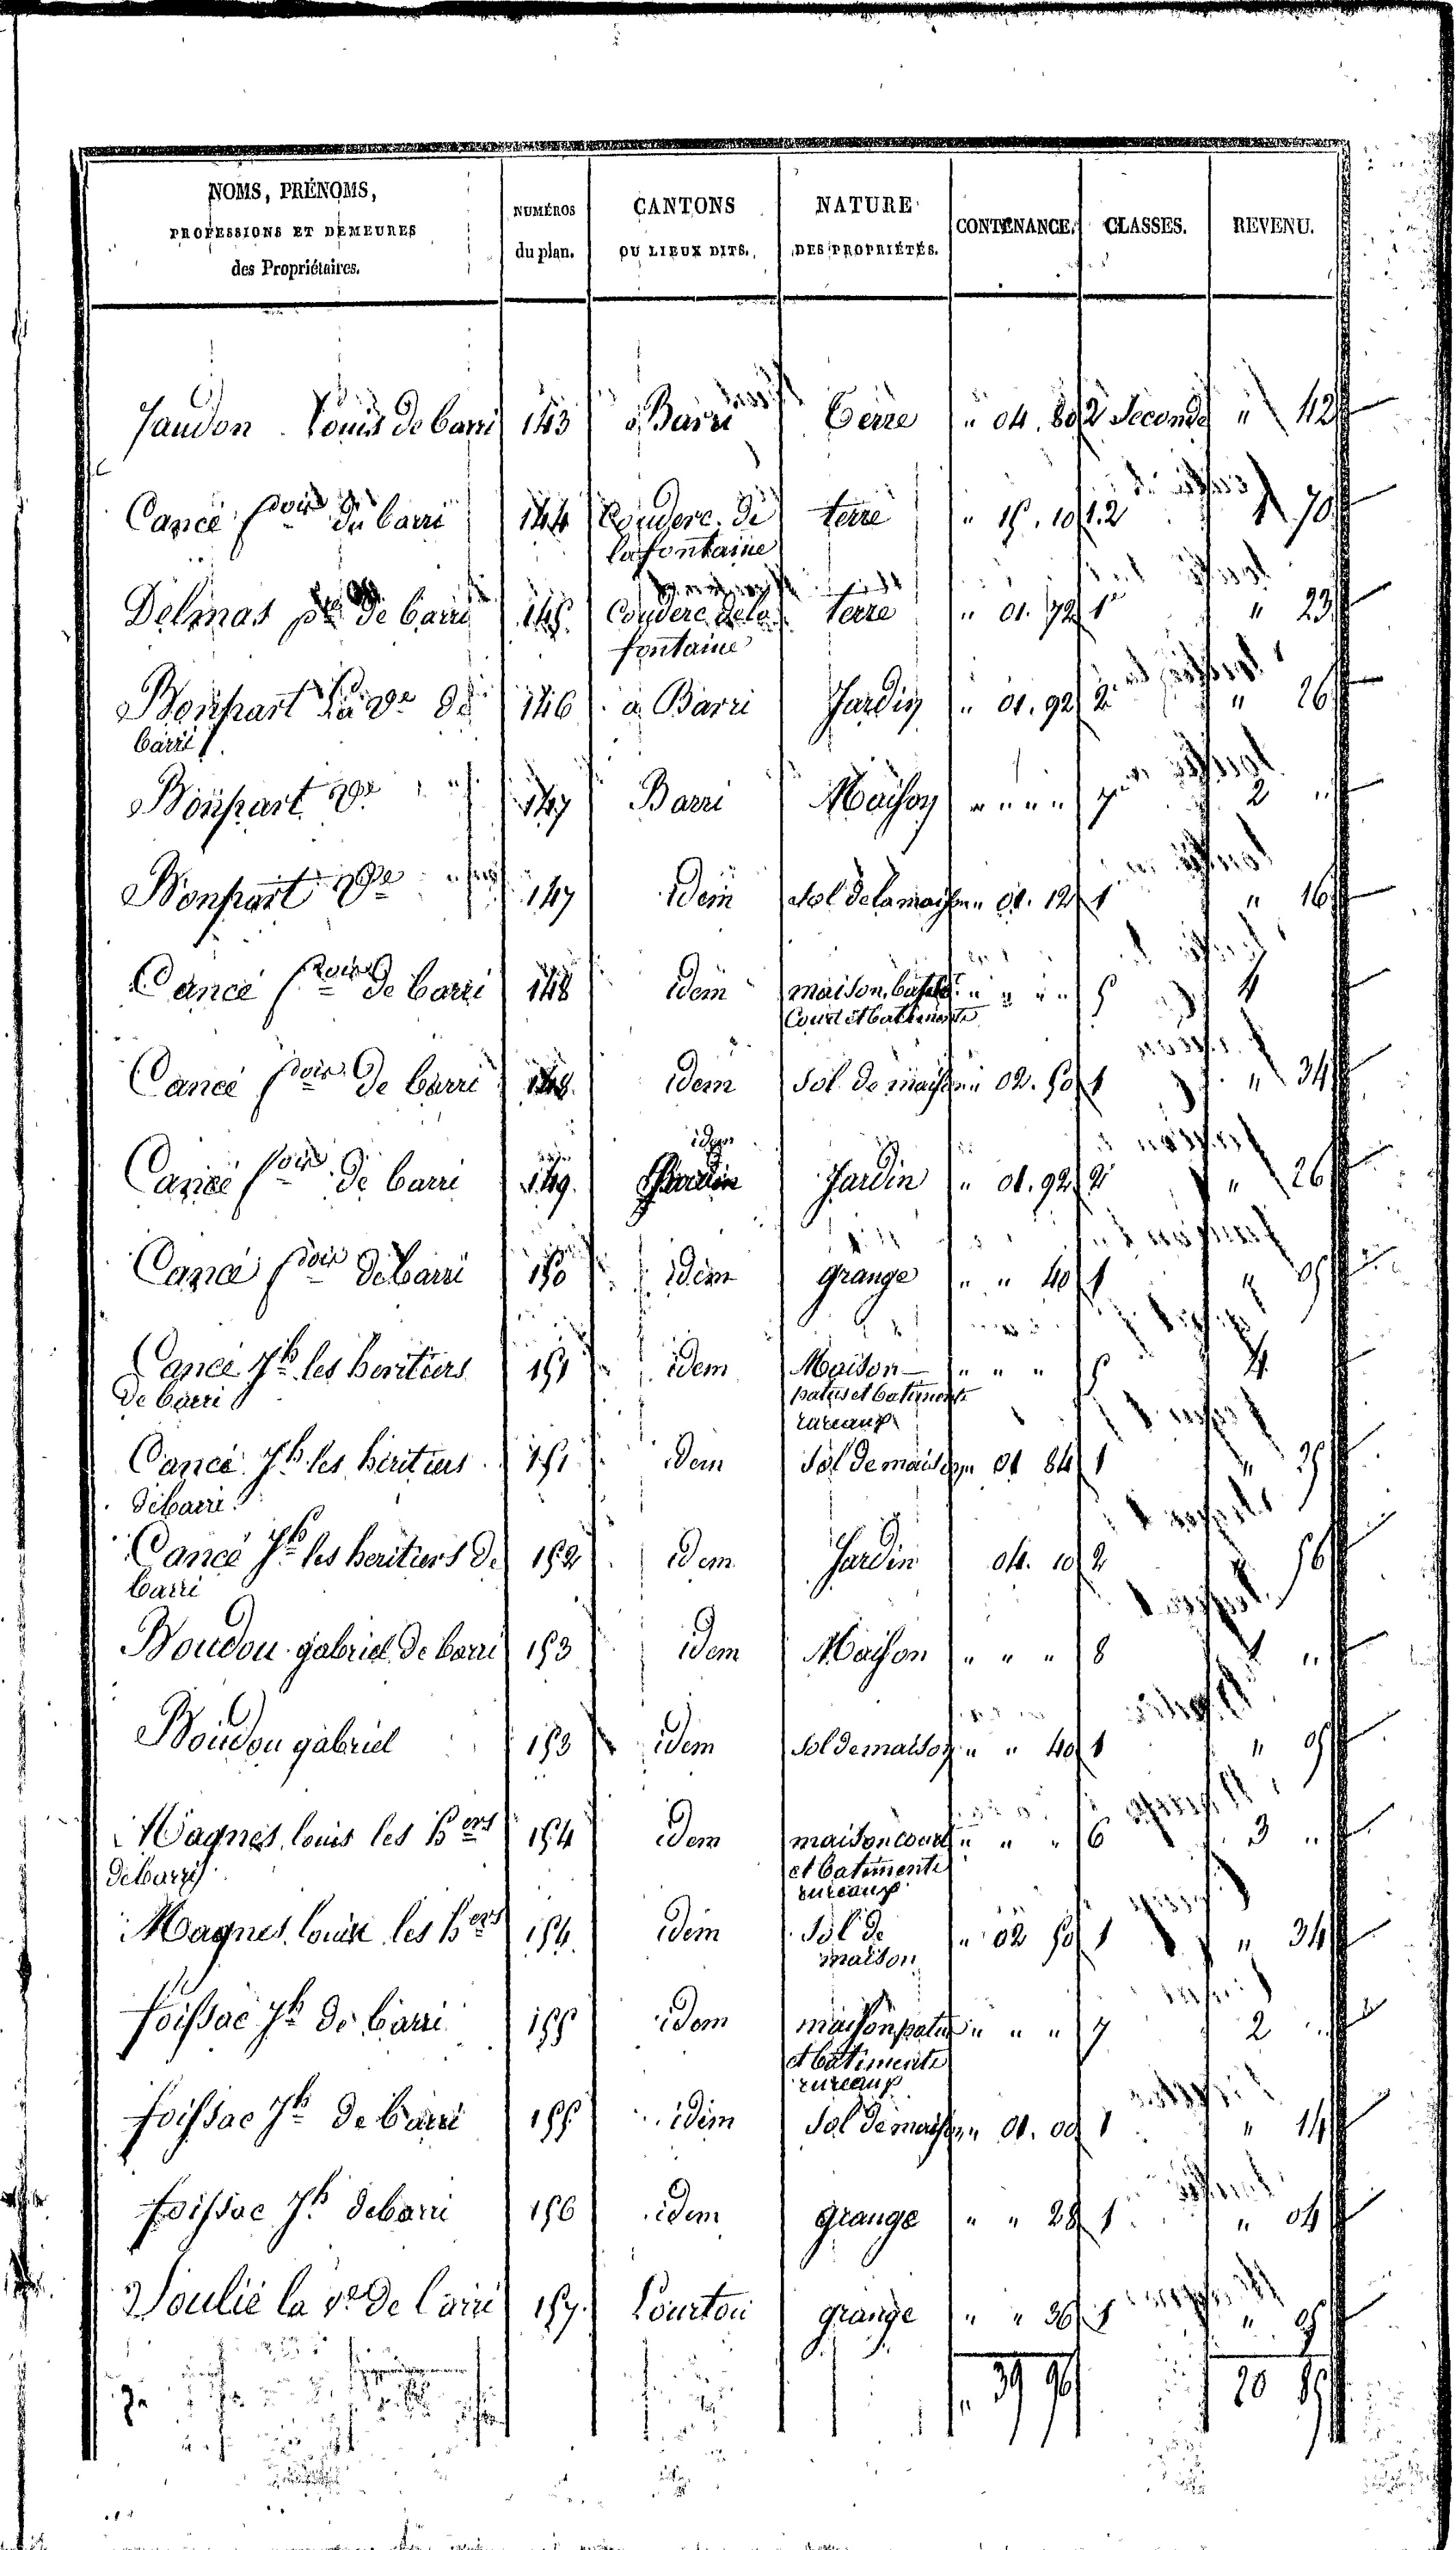 NOMS, PRÉNOMS, PROFESSIONS ET DEMEURES des Propriétaires. NUMÉROS du plan. CANTONS OU LIEUX DITS. NATURE DES PROPRIÉTÉS. CONTENANCE. CLASSES. REVENU.
Jaudon Louis de barri 143 à Barri Terre " 04. 80 2 Seconde " 42
Cancé fois du barri 144 Couderc de terre " 15. 10 1.2 1 70
lafontaine
Delmas pre de barri 145 Couderc dela terre " 01. 72 1e " 23
fontaine
Bonpart La ve de 146 à Barri Jardin " 01. 92 2 " 26
barri
Bonpart ve 147 Barri Maison " " " " 7 2 "
Bonpart ve 147 idem sol de la maison " 01. 12 1 " 16
Cancé fois de barri 148 idem maison, basse " " " " 5 4
Court et batiments
Cancé fois de barri 148 idem Sol de maison " 02. 50 1 " 34
idem
Cancé fois de barri 149 Jardin " 01. 92 2 " 26
Cancé fois de barri 150 idem grange " " 40 1 " 05
Cancé Jh les heritiers 151 idem Maison " " " 5 4
de barri patus et batiments
rureaux
Cancé Jh les héritiers 151 idem Sol de maison " 01 84 1 " 25
de barri
Cancé Jh les heritiers de 152 idem Jardin 04. 10 2 " 56
barri
Boudou gabriel de barri 153 idem Maison " " " 8 1 "
Boudou gabriel 153 idem sol de maison " " 40 1 " 05
Magnes louis les hers 154 idem maison court " " " 6 3 "
de barri et batiments
rureaux
Magnes louis les hers 154 idem Sol de " 02 50 1 " 34
maison
foissac Jh de barri 155 idem maison patus " " " 7 2 "
et batiments
rureaux
foissac Jh de barri 155 idem Sol de maison " 01. 00 1 " 14
foissac Jh de barri 156 idem grange " " 28 1 " 04
Soulié la ve de barri 157. Courtou grange " " 36 1 " 05
" 39 96 20 85